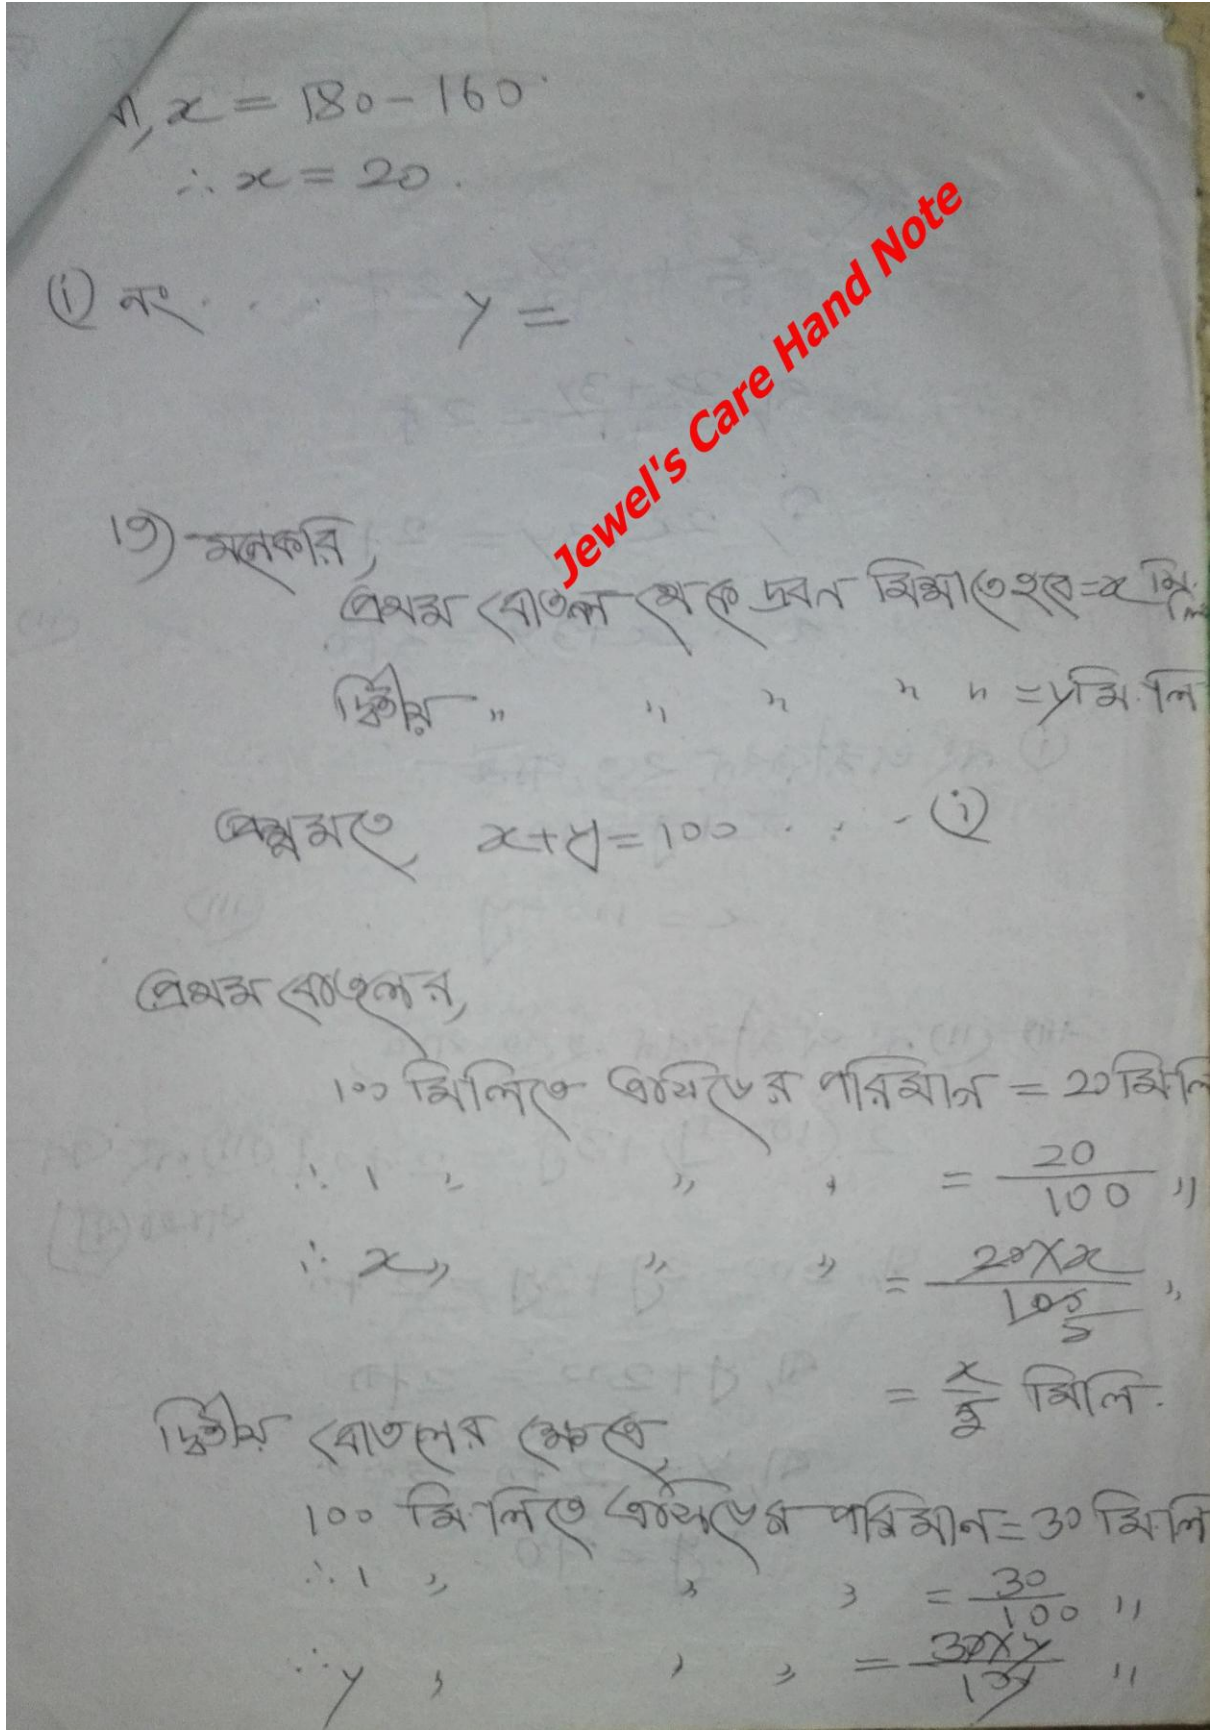 বা, x = 180 - 160
∴ x = 20.
(i) নং . . . y =
Jewel's Care Hand Note
19) মনেকরি,
প্রথম বোতল থেকে দ্রবন মিশাতে হবে = x মি.
দ্বিতীয় " " " " " = y মি. লি
প্রশ্নমতে, x + y = 100 . . . - (i)
প্রথম বোতলের,
100 মিলিতে এসিডের পরিমান = 20 মিলি
∴ 1 " " " = 20/100 "
∴ x " " " = 20×x/100 5 "
= x/5 মিলি.
দ্বিতীয় বোতলের ক্ষেত্রে,
100 মি.লিতে এসিডের পরিমান = 30 মি.লি
∴ 1 " " " = 30/100 "
∴ y " " " = 30×y/100 "